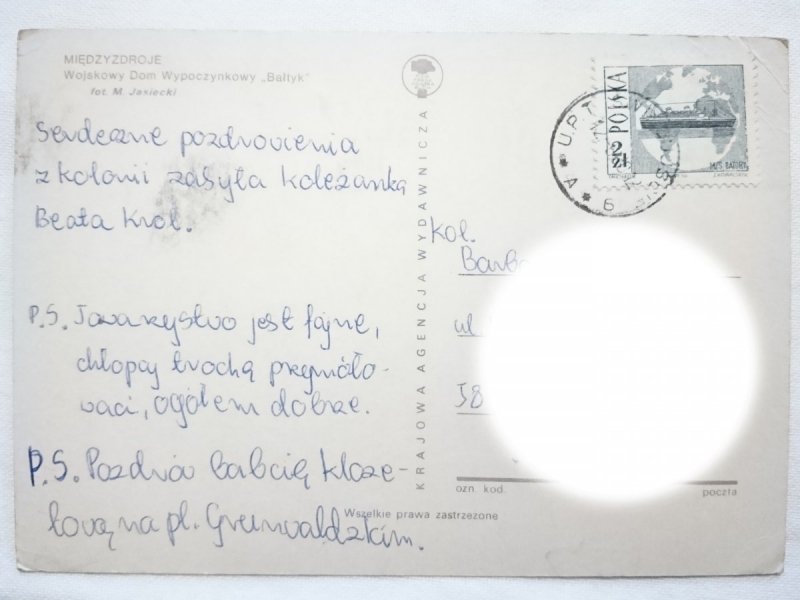 MIĘDZYZDROJE
Wojskowy Dom Wypoczynkowy „Bałtyk"
fot. M. Jasiecki
Serdeczne pozdrowienia
z kolonii zasyła koleżanka
Beata Krol.
P.S. Towarzystwo jest fajne,
chłopcy trochą przymóło-
waci, ogółem dobrze.
P.S. Pozdrów babcię kloze-
tową na pl. Grunwaldzkim.
KRAJOWA AGENCJA WYDAWNICZA
POLSKA
2 zł
M/S BATORY
U.P.T.
A 6
Kol.
Barb
ul
58
ozn. kod.
poczta
Wszelkie prawa zastrzeżone